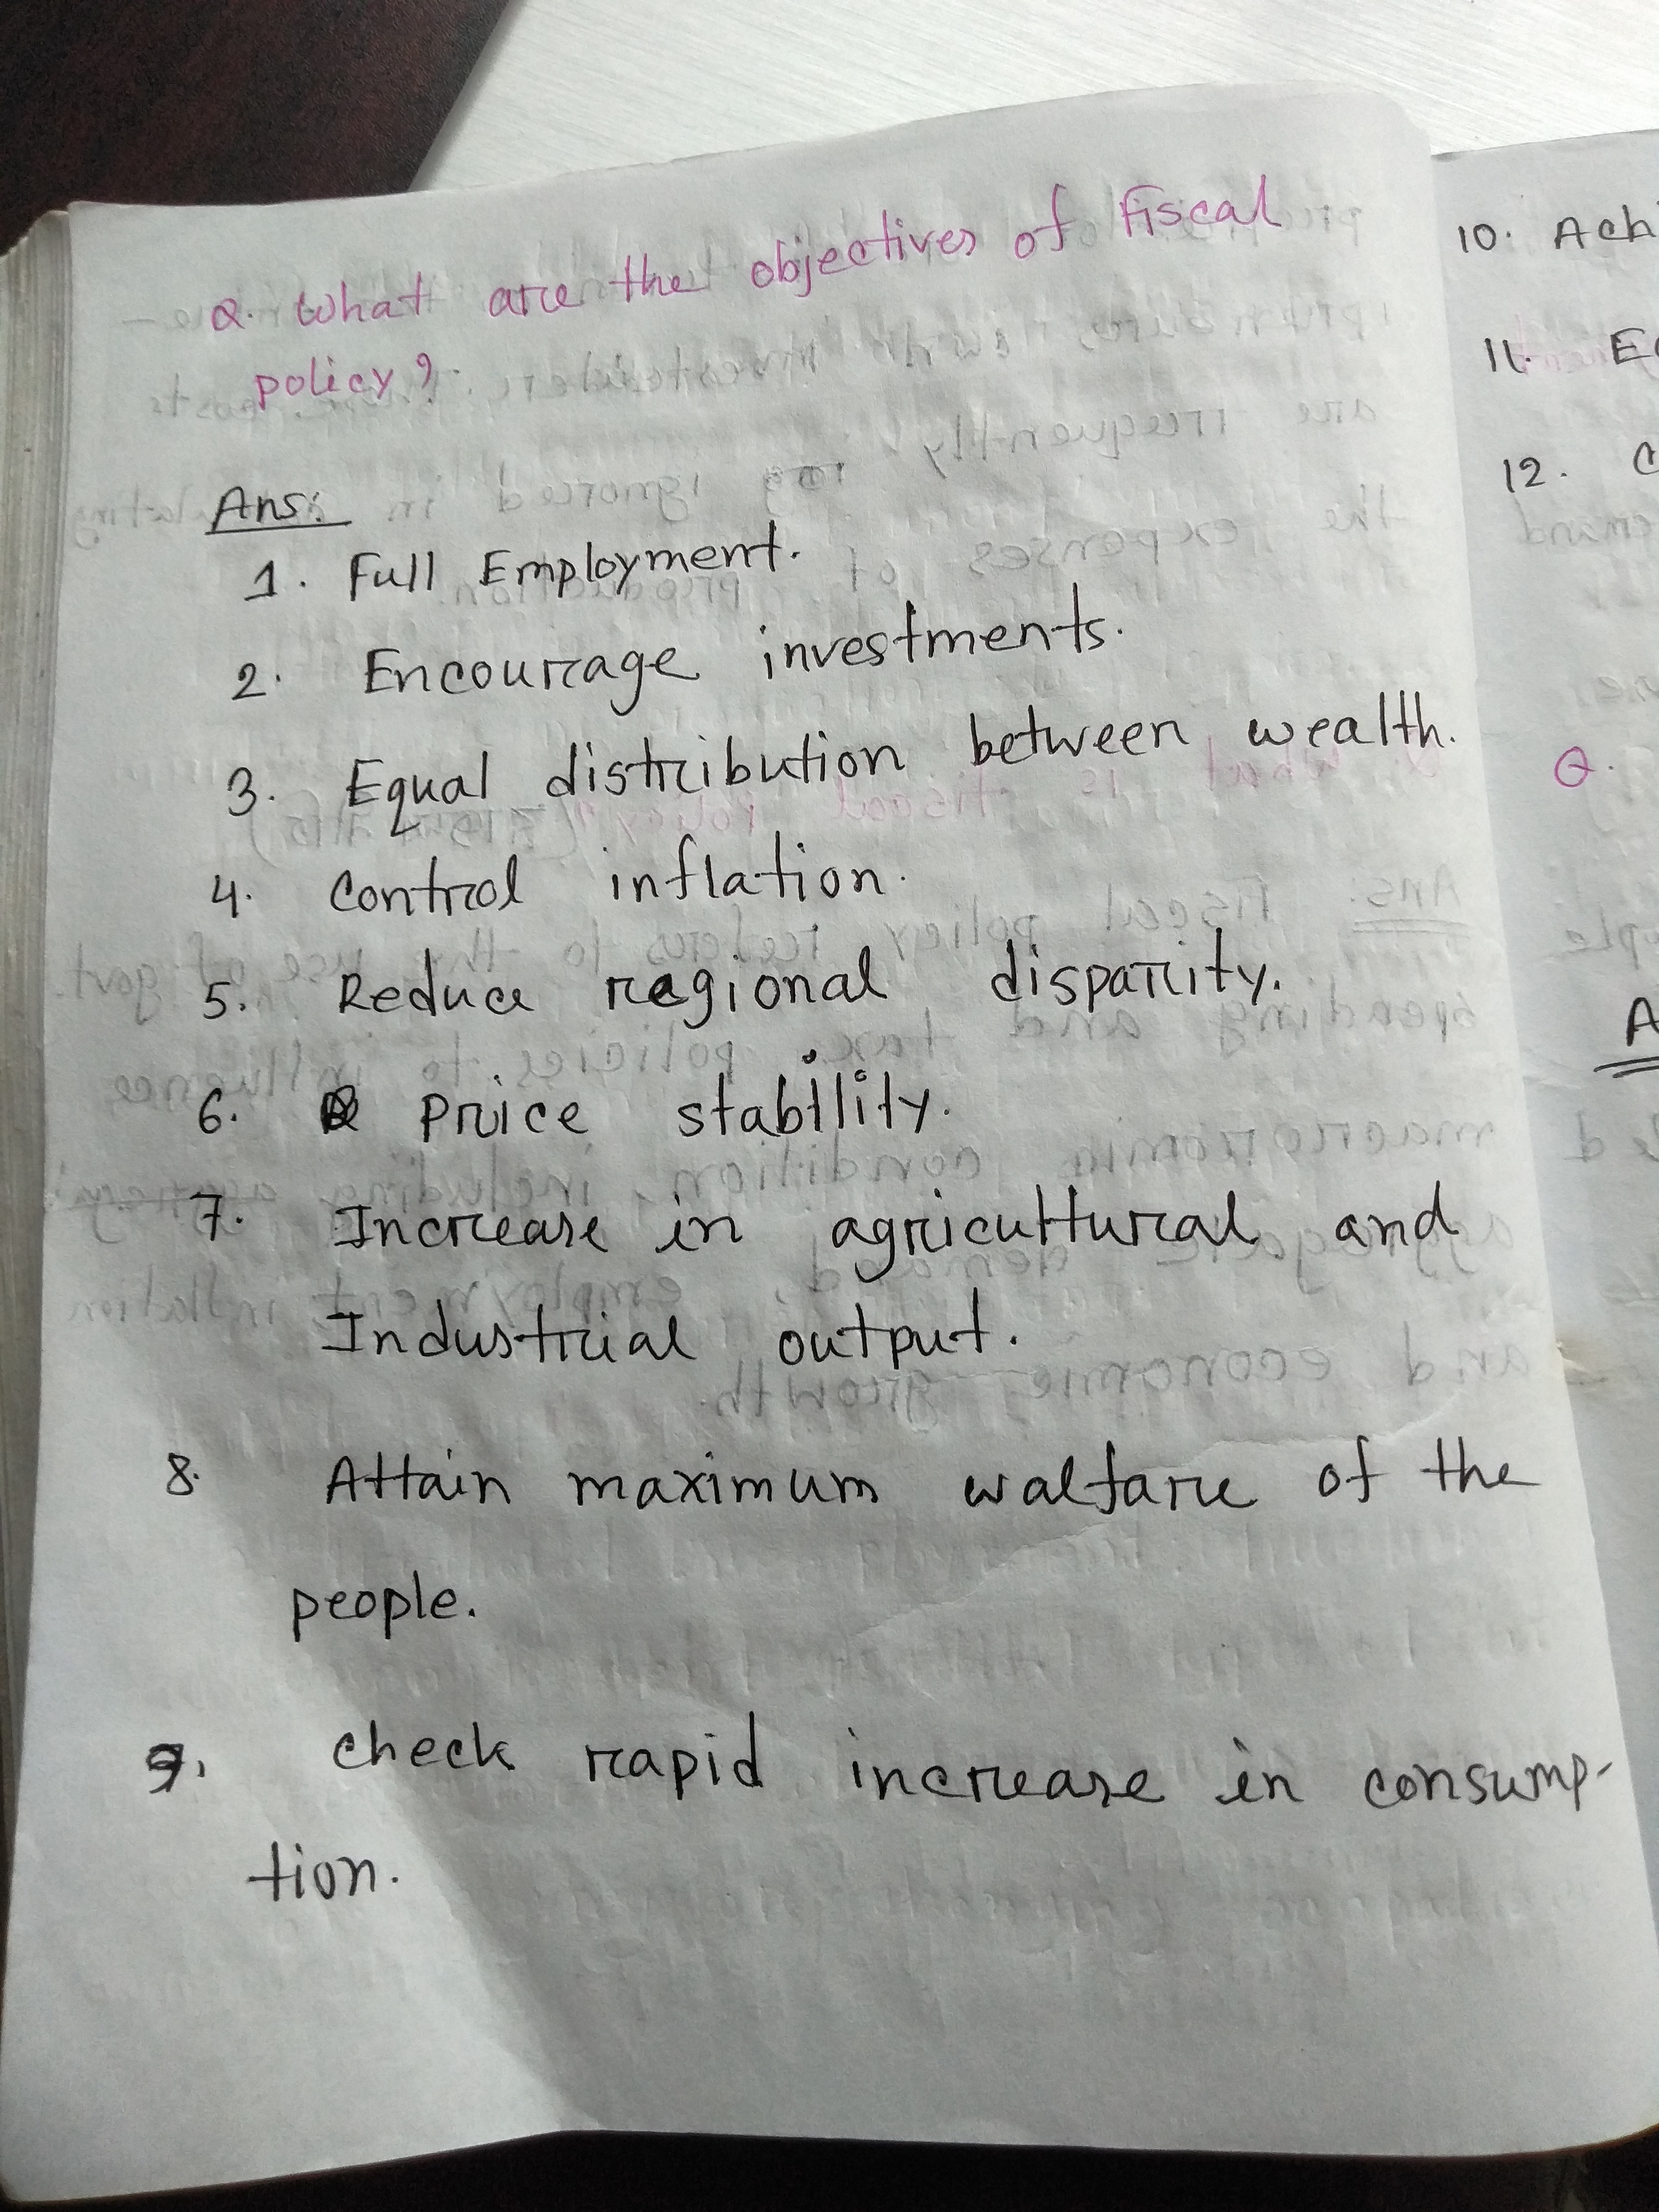 Q. What are the objectives of Fiscal
policy?
Ans:
1. Full Employment.
2. Encourage investments.
3. Equal distribution between wealth.
4. Control inflation.
5. Reduce regional disparity.
6. Price stability.
7. Increase in agricultural and
Industrial output.
8. Attain maximum walfare of the
people.
9. Check rapid increase in consump-
tion.
10.
11.
12.
Q.